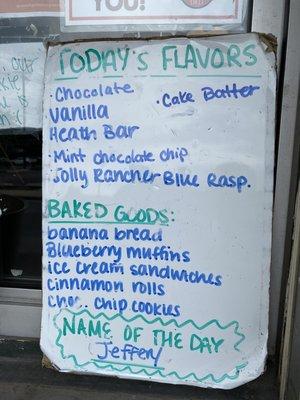 YOU!
TODAY'S FLAVORS
· Chocolate
· Cake Batter
Vanilla
Heath Bar
· Mint chocolate chip
Jolly Rancher Blue Rasp.
BAKED GOODS:
banana bread
Blueberry muffins
ice cream sandwiches
cinnamon rolls
choc. chip cookies
NAME OF THE DAY
Jeffery